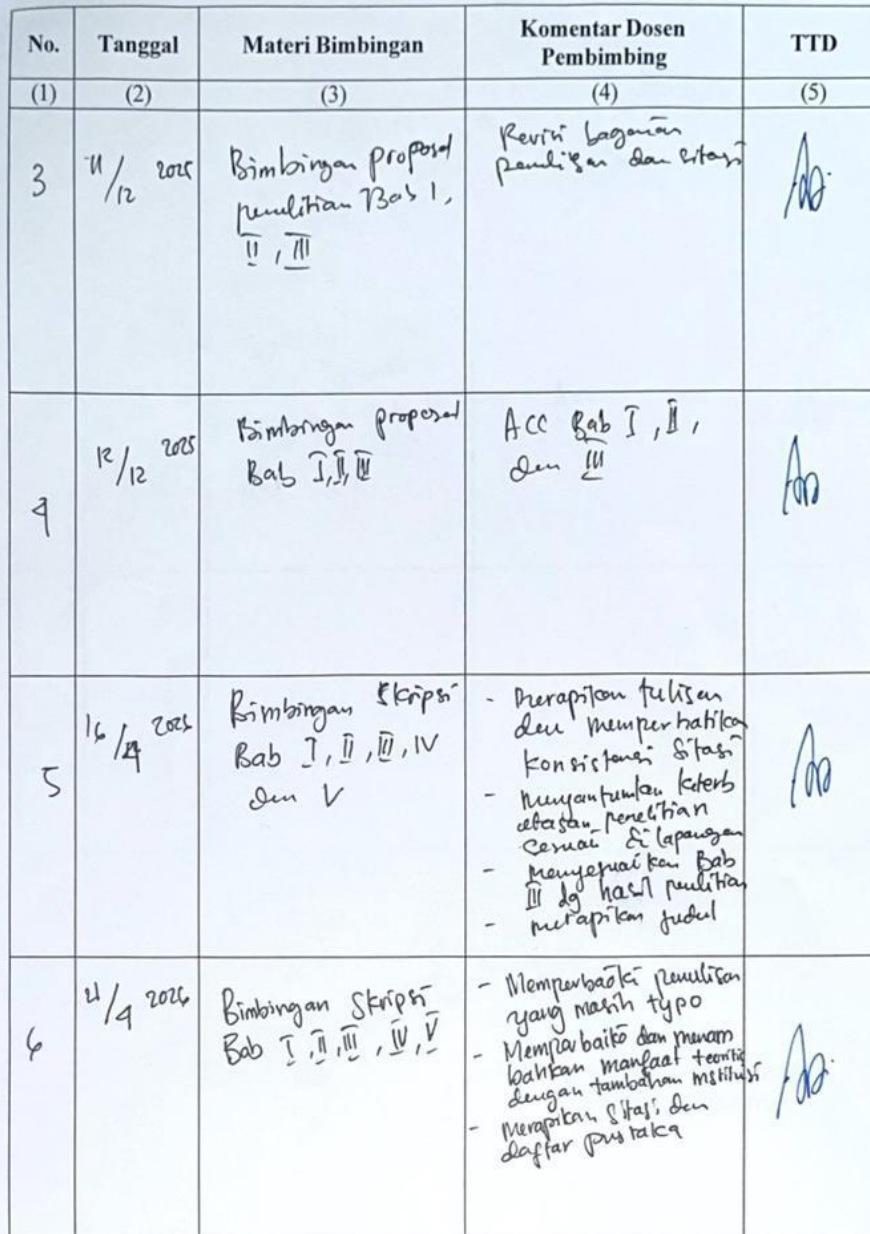 No.
Tanggal
Materi Bimbingan
Komentar Dosen
Pembimbing
TTD
(1)
(2)
(3)
(4)
(5)
3
11/12 2025
Bimbingan proposal
penelitian Bab I,
II, III
Revisi
penulisan dan sitasi
4
12/12 2025
Bimbingan proposal
Bab I, II, III
ACC Bab I, II,
dan III
5
16/4
Bimbingan Skripsi
Bab I, II, III, IV
dan V
- Merapikan tulisan
dan memperhatika
konsistensi sitasi
- Menyantumkan keterb
atasan penelitian
sesuai di lapangan
- Menyesuaikan Bab
III dg hasil penelitian
- merapikan judul
6
21/4 2026
Bimbingan Skripsi
Bab I, II, III, IV, V
- Memperbaiki penulisan
yang masih typo
- Memperbaiki dan menam
bahkan manfaat teoritis
dengan tambahan institusi
- Merapikan sitasi dan
daftar pustaka